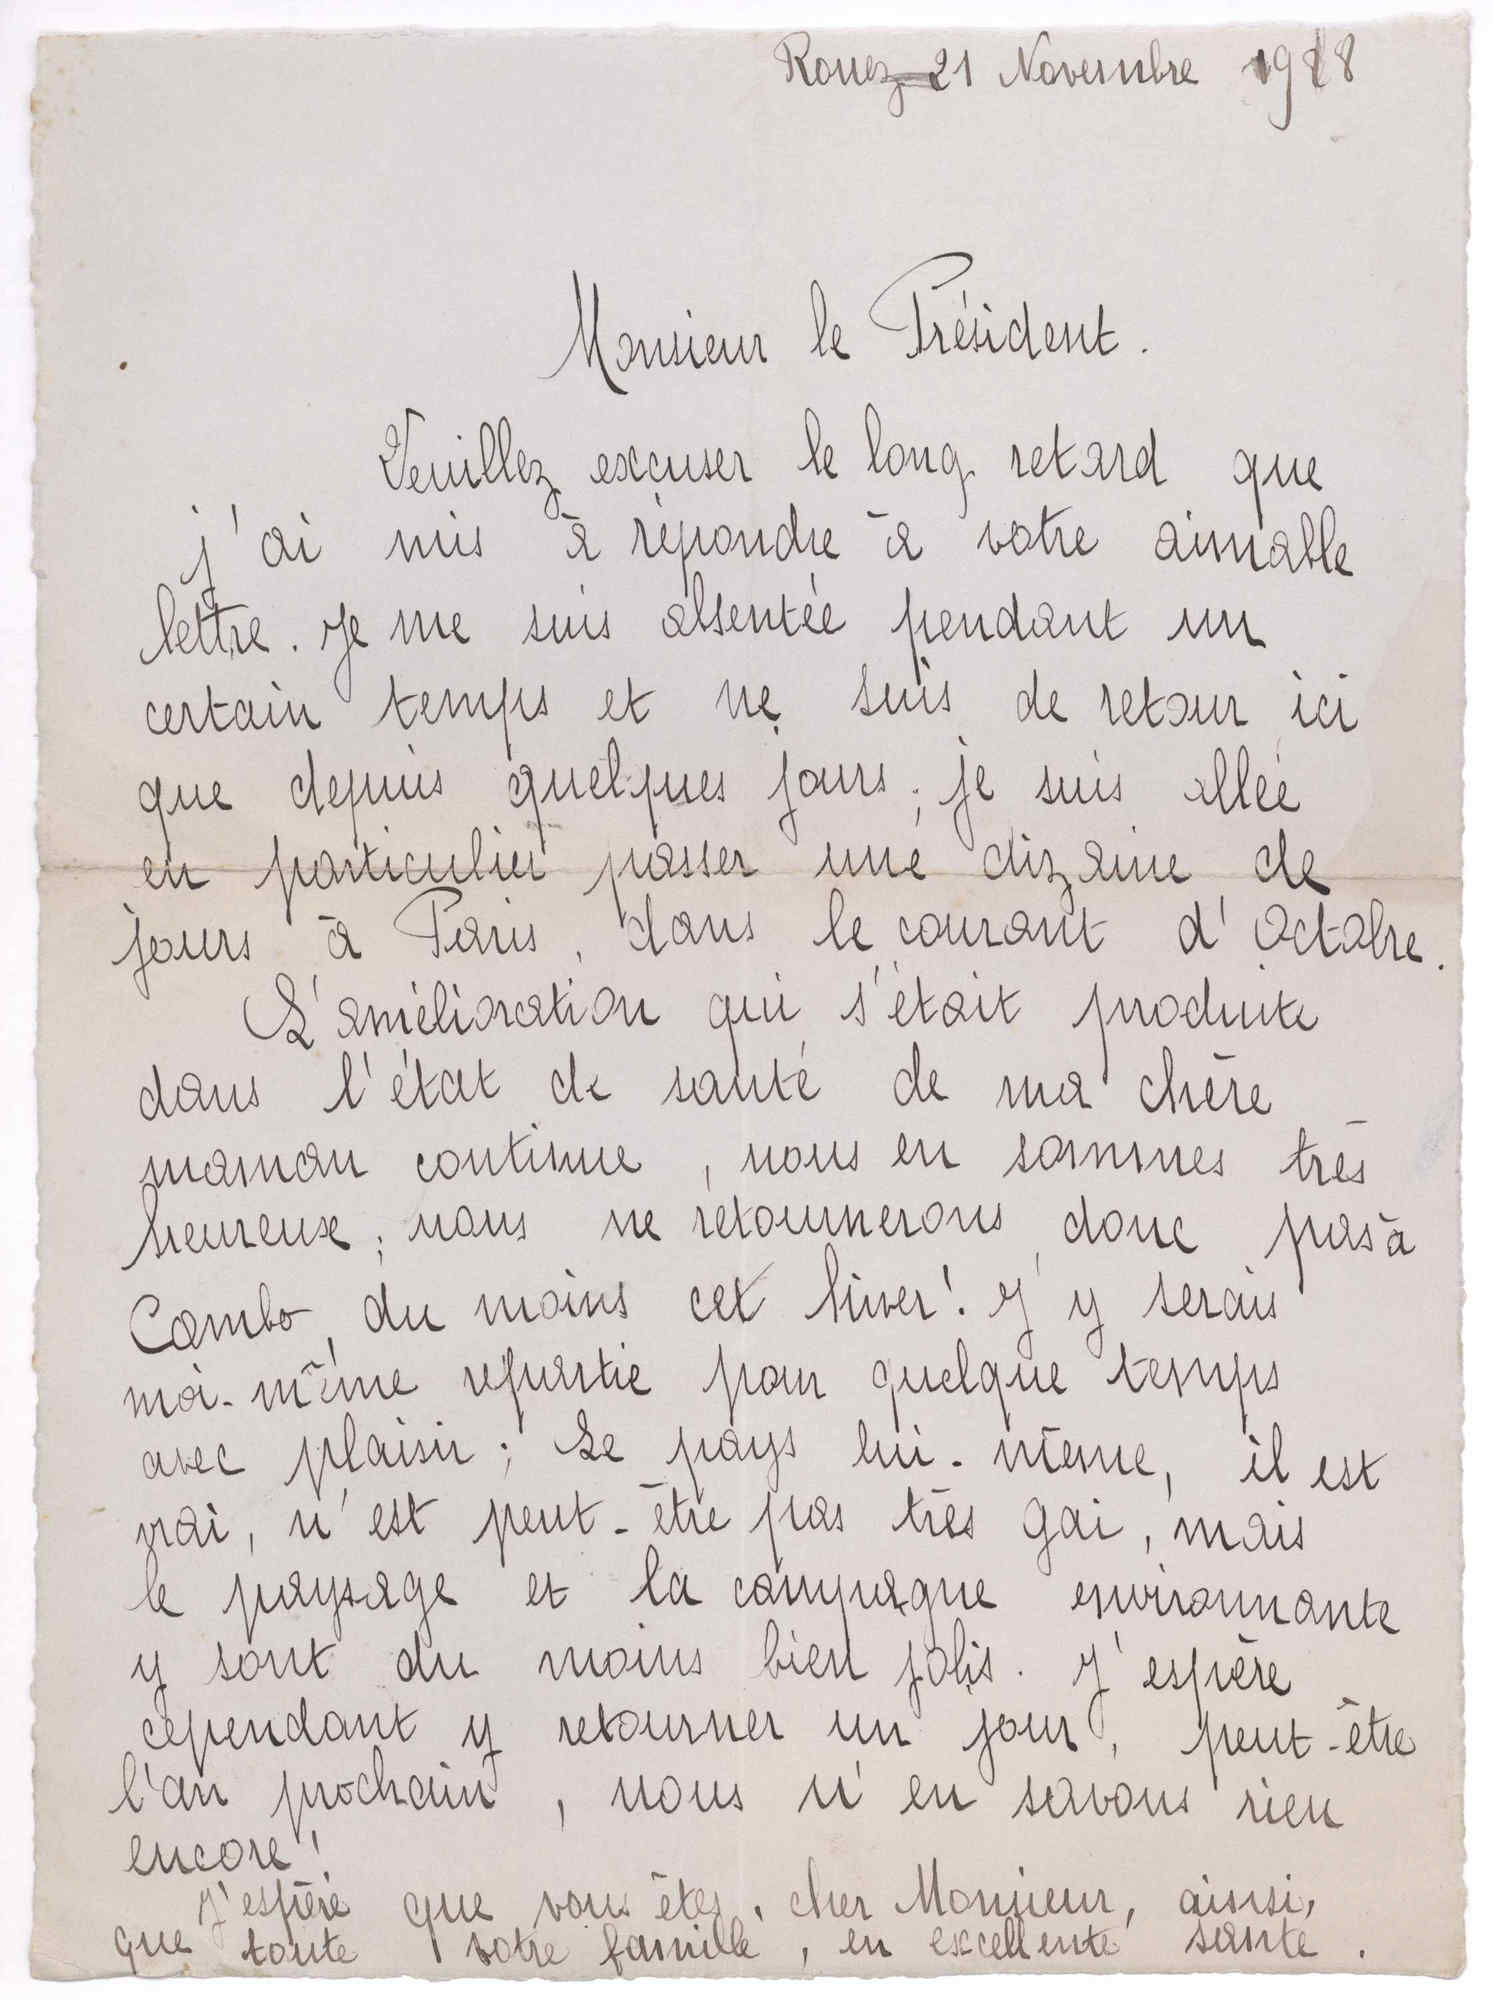 Rouez 21 Novembre 1928
Monsieur le Président.
Veuillez excuser le long retard que
j'ai mis à répondre à votre aimable
lettre. Je me suis absentée pendant un
certain temps et ne suis de retour ici
que depuis quelques jours ; je suis allée
en particulier passer une dizaine de
jours à Paris, dans le courant d'Octobre.
L'amélioration qui s'était produite
dans l'état de santé de ma chère
maman continue, nous en sommes très
heureuse ; nous ne retournerons donc pas à
Cambo, du moins cet hiver ! J'y serais
moi-même repartie pour quelque temps
avec plaisir ; Le pays lui-même, il est
vrai, n'est peut-être pas très gai, mais
le paysage et la campagne environnante
y sont du moins bien jolis. J'espère
cependant y retourner un jour, peut-être
l'an prochain, nous n'en savons rien
encore !
J'espère que vous êtes, cher Monsieur, ainsi,
que toute votre famille, en excellente santé.